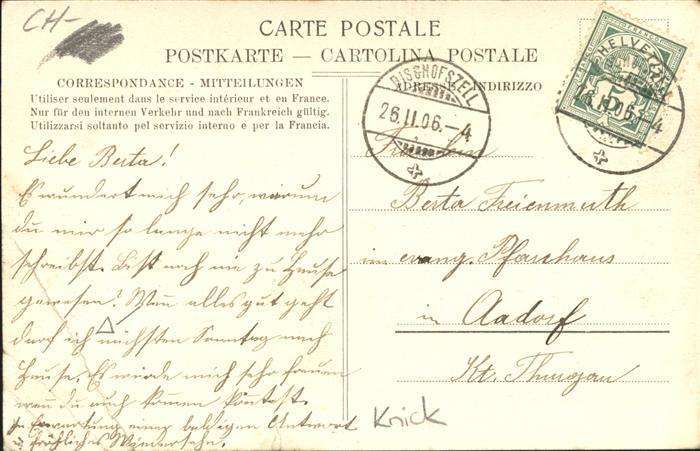 CH-
CARTE POSTALE
POSTKARTE — CARTOLINA POSTALE
CORRESPONDANCE - MITTEILUNGEN
Utiliser seulement dans le service intérieur et en France.
Nur für den internen Verkehr und nach Frankreich gültig.
Utilizzarsi soltanto pel servizio interno e per la Francia.
Liebe Berta!
Es wundert mich sehr, warum
du mir so lange nicht mehr
schreibst. Bist noch nie zu Hause
gewesen? Wenn alles gut geht
darf ich nächsten Sonntag nach
Hause. Es würde mich sehr freuen
wenn du auch kommen könntest.
In Erwartung einer baldigen Antwort
fröhliches Wiedersehn.
INDIRIZZO
BISCHOFSZELL
26.II.06.-4
HELVETIA
5
Fräulein
Berta Freienmuth
im evang. Pfarrhaus
in Aadorf
Kt. Thurgau
Knick